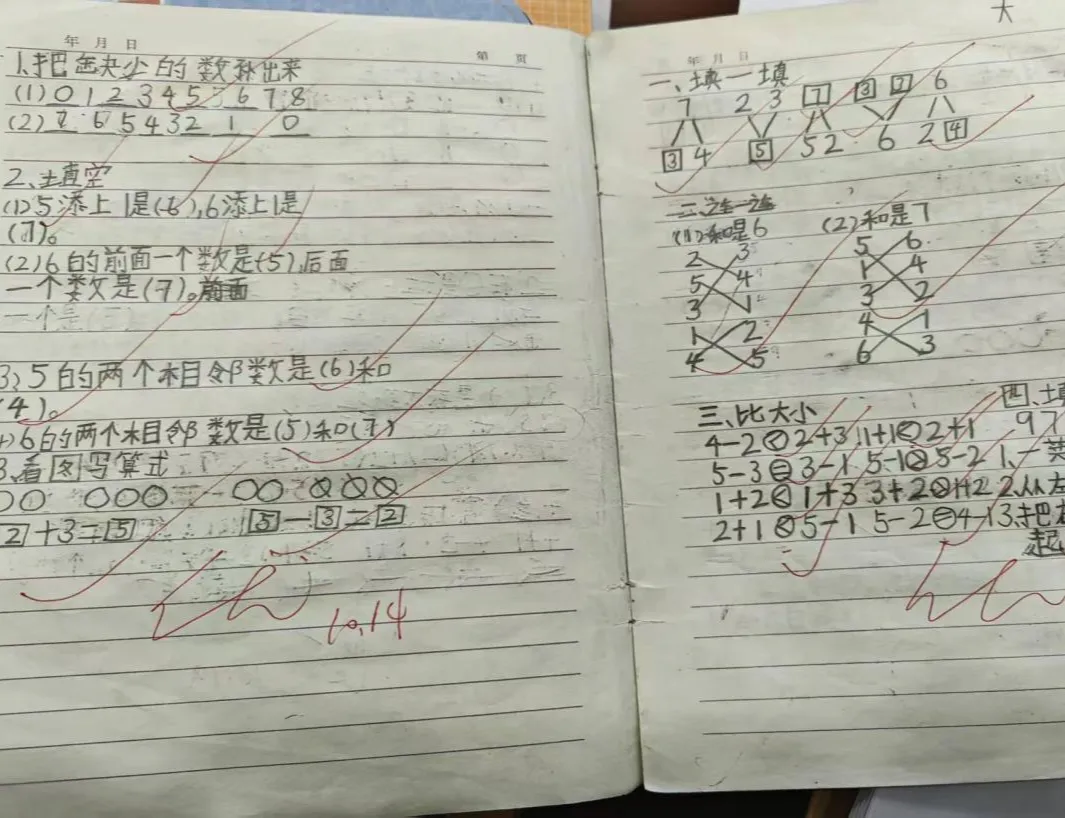 年 月 日
第 页
1、把缺少的数补出来
(1) 0 1 2 3 4 5 6 7 8
(2) 7 6 5 4 3 2 1 0
2、填空
(1) 5添上1是(6),6添上1是
(7)。
(2) 6的前面一个数是(5),后面
一个数是(7)。
3、5的两个相邻数是(6)和
(4)。
6的两个相邻数是(5)和(7)
3、看图写算式
2+3=5 5-3=2
10.14
大
年 月 日
一、填一填
7 2 3 7 3 7 6
3 4 5 5 2 6 2 4
二、连一连
(1)和是6 (2)和是7
2 3 5 6
5 4 1 4
3 1 3 2
1 2 4 1
4 5 6 3
三、比大小
四、填
4-2<2+3 1+1<2+1 9 7
5-3=3-1 5-1>5-2 1、一共
1+2<1+3 3+2>1+2 2、从左
2+1<5-1 5-2=4-1 3、把右
起